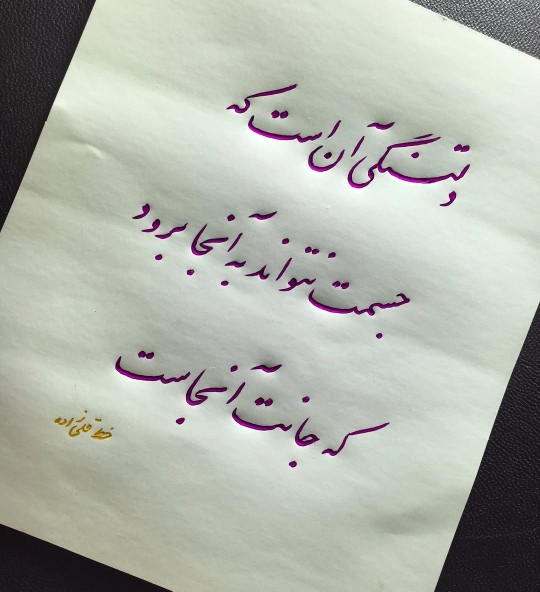 دلتنگی آن است که
جسمت نتواند به آنجا برود
که جانت آنجاست
خط قلی‌زاده